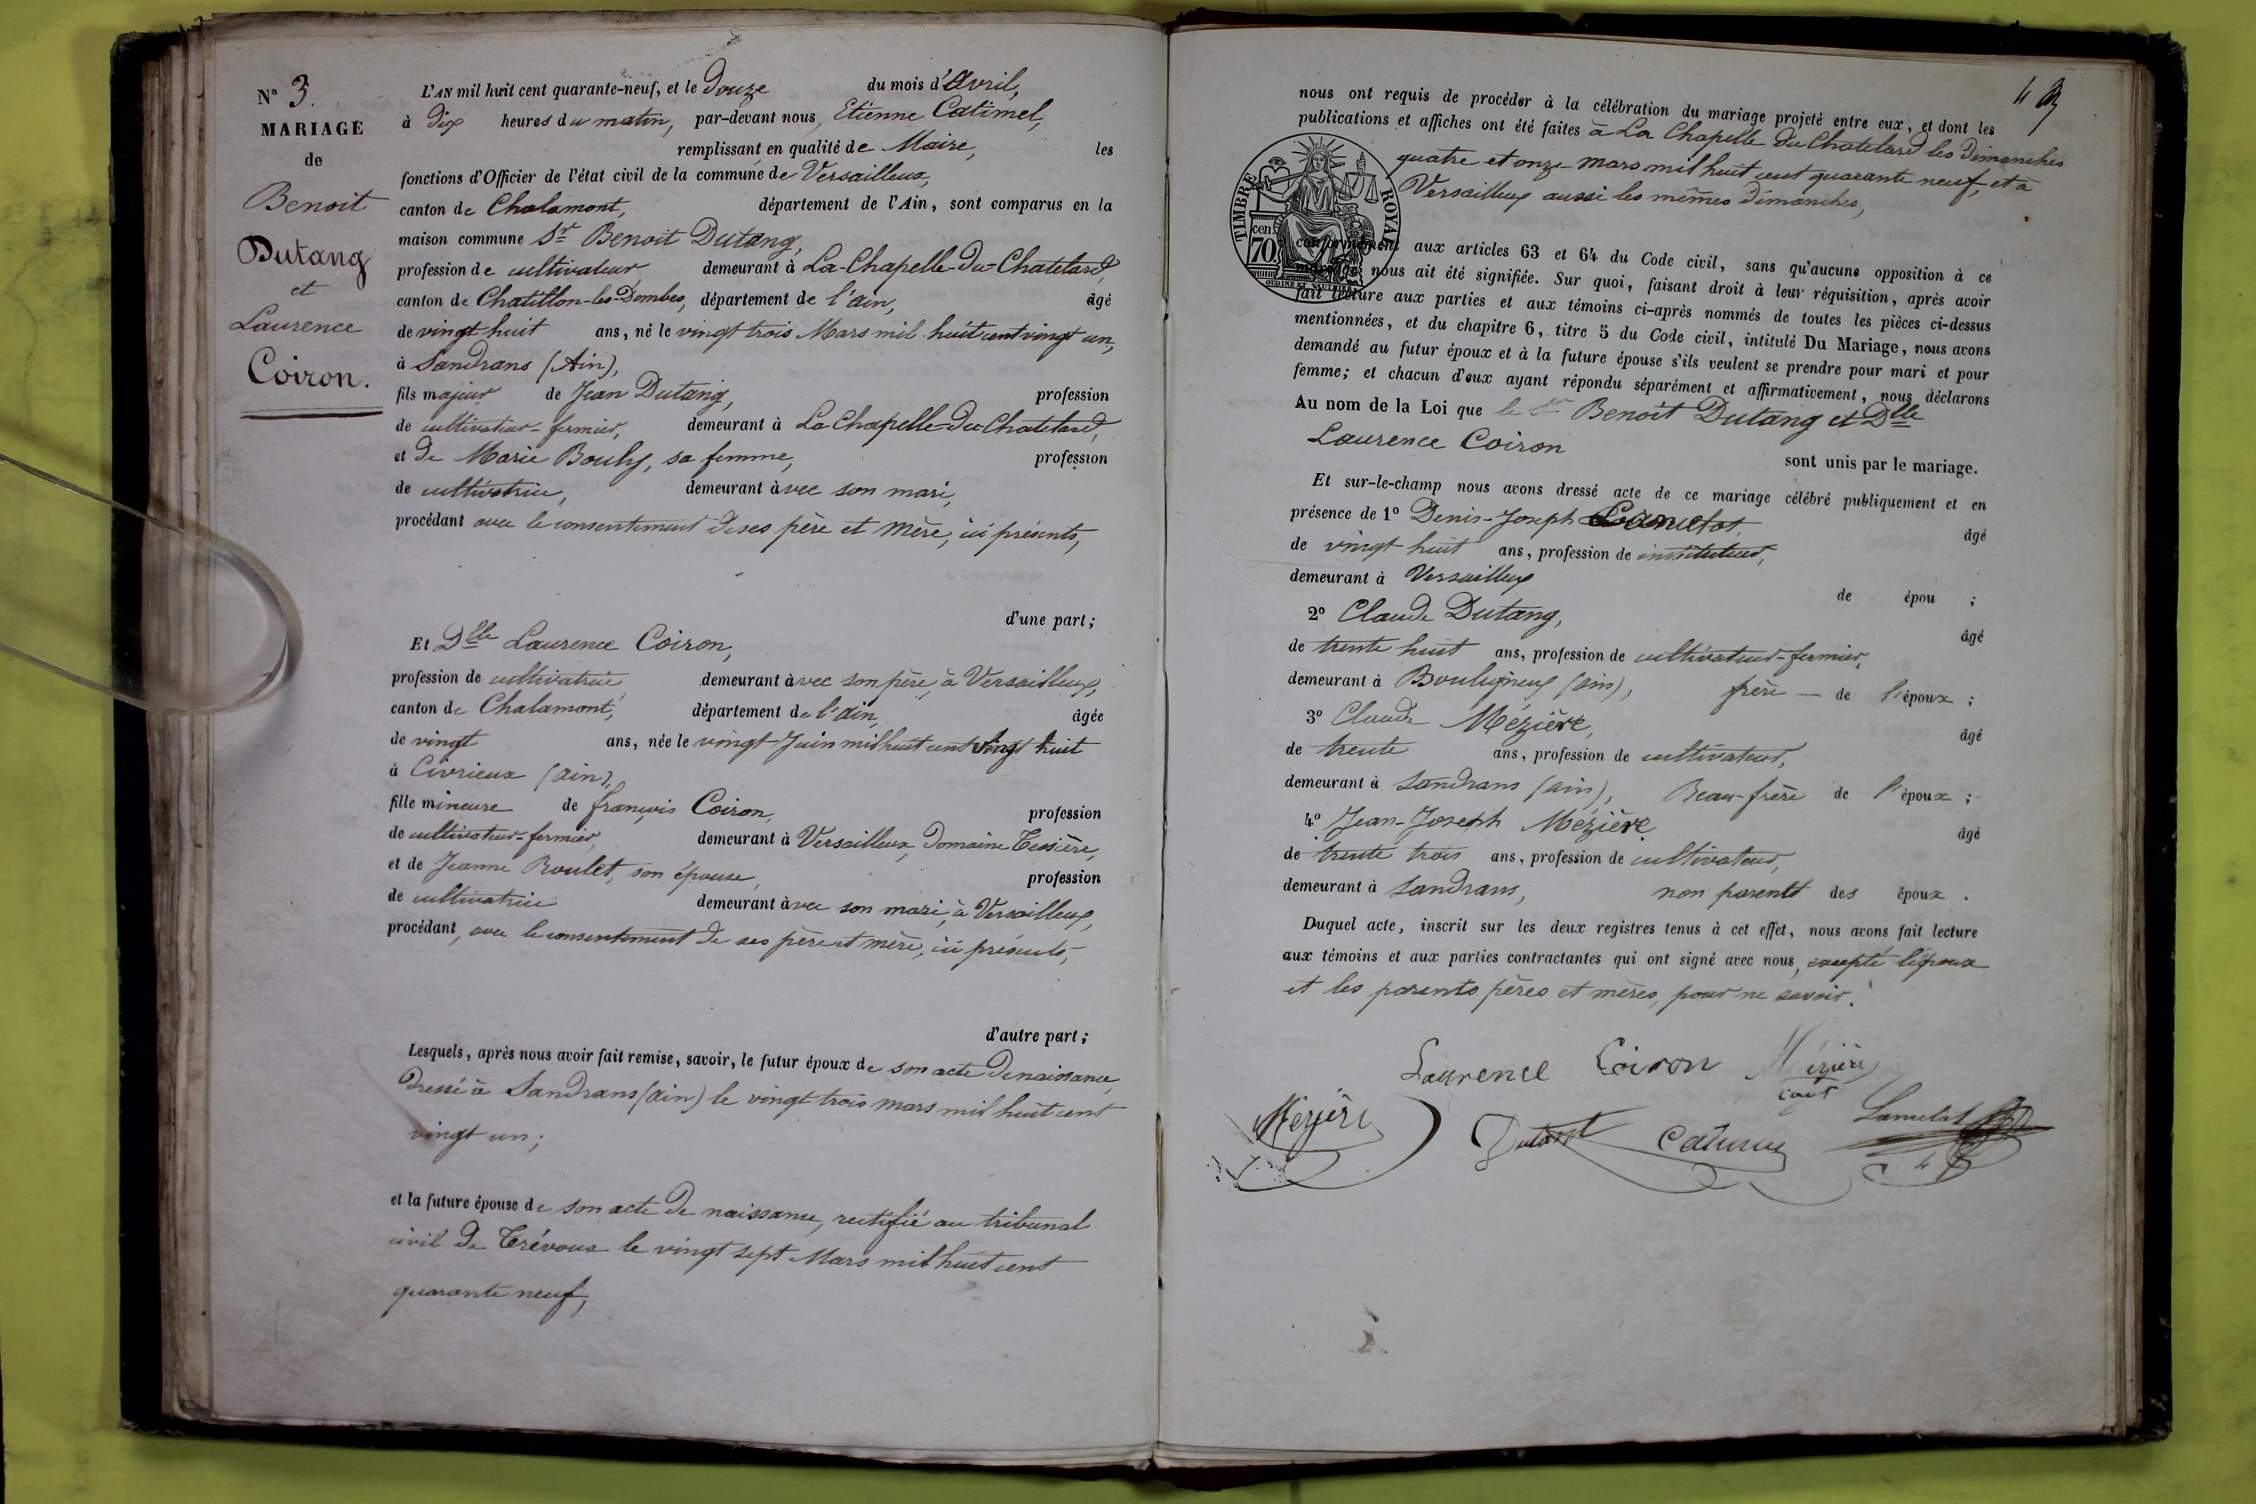 N° 3.
MARIAGE
de
Benoit
Dutang
et
Laurence
Coiron.
L'AN mil huit cent quarante-neuf, et le Douze du mois d'Avril,
à Dix heures du matin, par-devant nous, Etienne Catimel,
remplissant en qualité de Maire, les
fonctions d'Officier de l'état civil de la commune de Versailleux,
canton de Chalamont, département de l'Ain, sont comparus en la
maison commune Sr Benoit Dutang,
profession de cultivateur demeurant à La-Chapelle-du-Chatelard,
canton de Chatillon-les-Dombes, département de l'ain, âgé
de vingt huit ans, né le vingt trois Mars mil huit cent vingt un,
à Sandrans (Ain),
fils majeur de Jean Dutang, profession
de cultivateur-fermier, demeurant à La Chapelle-du-Chatelard,
et de Marie Bouly, sa femme, profession
de cultivatrice, demeurant avec son mari,
procédant avec le consentement de ses père et mère, ici présents,
d'une part;
Et Dlle Laurence Coiron,
profession de cultivatrice, demeurant avec son père, à Versailleux,
canton de Chalamont, département de l'ain, âgée
de vingt ans, née le vingt Juin mil huit cent vingt huit
à Civrieux (ain),
fille mineure de françois Coiron, profession
de cultivateur-fermier, demeurant à Versailleux, Domaine Tessière,
et de Jeanne Roulet, son épouse, profession
de cultivatrice demeurant avec son mari, à Versailleux,
procédant, avec le consentement de ses père et mère, ici présents,
d'autre part;
Lesquels, après nous avoir fait remise, savoir, le futur époux de son acte de naissance,
Dressé à Sandrans (ain) le vingt trois mars mil huit cent
vingt un;
et la future épouse de son acte de naissance, rectifié au tribunal
civil de Trévoux le vingt sept Mars mil huit cent
quarante neuf,
4
nous ont requis de procéder à la célébration du mariage projeté entre eux, et dont les
publications et affiches ont été faites à La Chapelle du Chatelard les dimanches
quatre et onze mars mil huit cent quarante neuf, et à
Versailleux aussi les mêmes dimanches,
TIMBRE ROYAL
70 cen
OUDINÉ ET VAUTHIER
conformément aux articles 63 et 64 du Code civil, sans qu'aucune opposition à ce
mariage nous ait été signifiée. Sur quoi, faisant droit à leur réquisition, après avoir
fait lecture aux parties et aux témoins ci-après nommés de toutes les pièces ci-dessus
mentionnées, et du chapitre 6, titre 5 du Code civil, intitulé Du Mariage, nous avons
demandé au futur époux et à la future épouse s'ils veulent se prendre pour mari et pour
femme; et chacun d'eux ayant répondu séparément et affirmativement, nous déclarons
Au nom de la Loi que le Sr Benoit Dutang et Dlle
Laurence Coiron
sont unis par le mariage.
Et sur-le-champ nous avons dressé acte de ce mariage célébré publiquement et en
présence de 1° Denis-Joseph Lamelot, âgé
de vingt huit ans, profession de instituteur,
demeurant à Versailleux de épou ;
2° Claude Dutang, âgé
de trente huit ans, profession de cultivateur-fermier,
demeurant à Bouligneux (ain), frère de l'époux ;
3° Claude Mézière, âgé
de trente ans, profession de cultivateur,
demeurant à Sandrans (ain), Beau-frère de l'époux ;
4° Jean-Joseph Mézière, âgé
de trente trois ans, profession de cultivateur,
demeurant à Sandrans, non parent des époux .
Duquel acte, inscrit sur les deux registres tenus à cet effet, nous avons fait lecture
aux témoins et aux parties contractantes qui ont signé avec nous, excepté l'époux
et les parents pères et mères, pour ne savoir.
Laurence Coiron Mézière
Mézière Catimel Lamelot